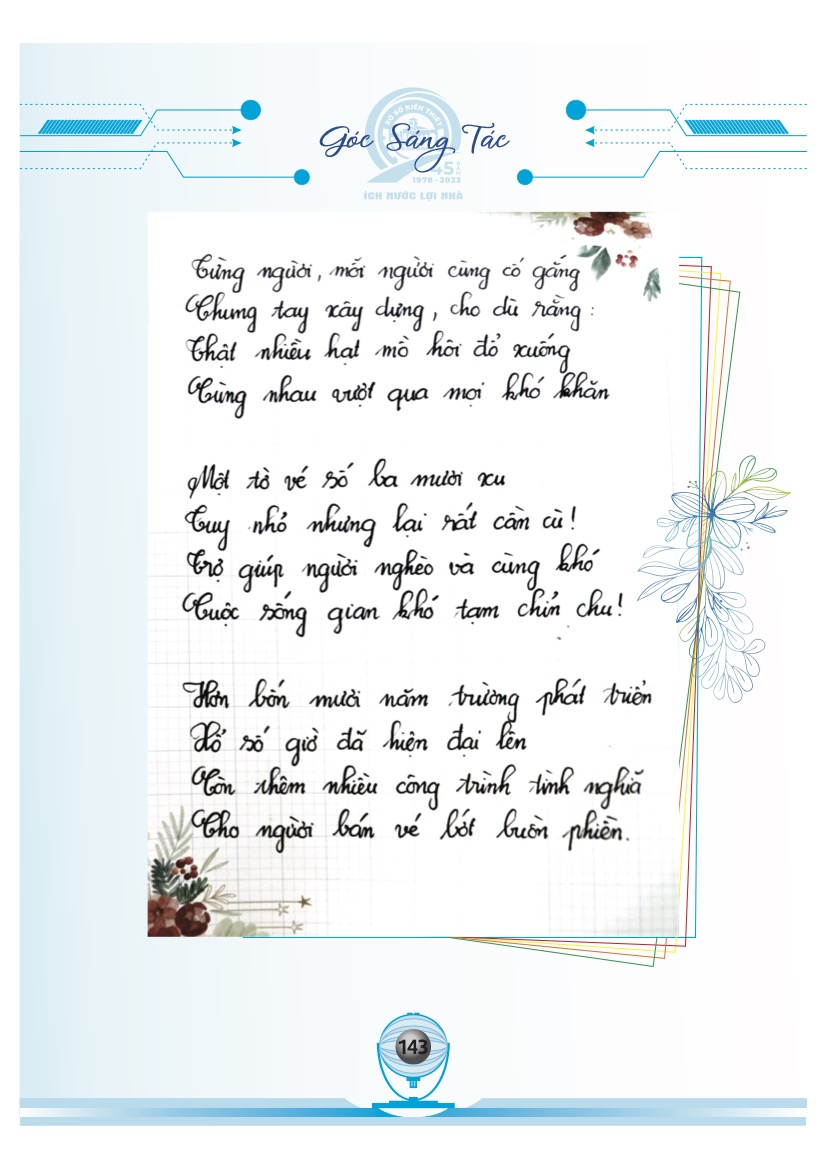 XỔ SỐ KIẾN THIẾT
Góc Sáng Tác
45 NĂM
1978 - 2023
ÍCH NƯỚC LỢI NHÀ
Từng người, mỗi người cùng cố gắng
Chung tay xây dựng, cho dù rằng:
Thật nhiều hạt mồ hôi đổ xuống
Cùng nhau vượt qua mọi khó khăn
Một tờ vé số ba mươi xu
Tuy nhỏ nhưng lại rất cần cù!
Trợ giúp người nghèo và cùng khó
Cuộc sống gian khó tạm chỉn chu!
Hơn bốn mươi năm trường phát triển
Xổ số giờ đã hiện đại lên
Còn thêm nhiều công trình tình nghĩa
Cho người bán vé bớt buồn phiền.
143